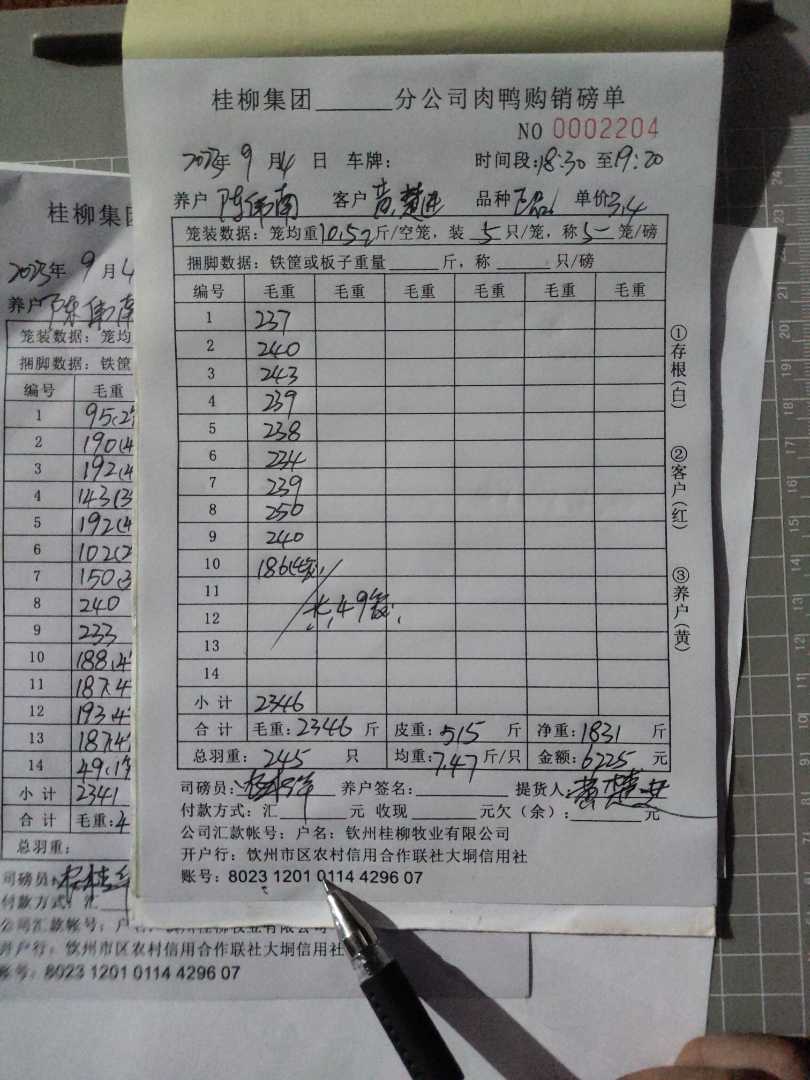 桂柳集团______分公司肉鸭购销磅单
NO 0002204
2023年 9 月 4 日 车牌: 时间段:18:30 至19:20
养户 陈伟南 客户 黄楚进 品种 正品 单价3.4
笼装数据: 笼均重10.52斤/空笼, 装 5 只/笼, 称5 笼/磅
捆脚数据: 铁筐或板子重量______斤, 称______只/磅
编号 毛重 毛重 毛重 毛重 毛重 毛重
1 237
2 240
3 243
4 239
5 238
6 234
7 239
8 250
9 240
10 186(4笼)
11
12 共49笼
13
14
小计 2346
合计 毛重:2346 斤 皮重:515 斤 净重:1831 斤
总羽重: 245 只 均重:7.47斤/只 金额:6225 元
司磅员: 养户签名: 提货人:
付款方式: 汇______元 收现______元欠(余): ______元
公司汇款帐号: 户名: 钦州桂柳牧业有限公司
开户行: 钦州市区农村信用合作联社大垌信用社
账号: 8023 1201 0114 4296 07
①存根(白)
②客户(红)
③养户(黄)
桂柳集
2023年 9 月 4
养户 陈伟南
笼装数据: 笼均
捆脚数据: 铁筐
编号 毛重
1 95(2
2 190(4
3 192(4
4 143(3
5 192(4
6 102(2
7 150(3
8 240
9 233
10 188(4
11 187(4
12 193(4
13 187(4
14 49(1
小计 2341
合计 毛重:4
总羽重:
司磅员:
付款方式: 汇
公司汇款帐号: 户名: 钦州桂柳牧业有限公司
开户行: 钦州市区农村信用合作联社大垌信用社
账号: 8023 1201 0114 4296 07